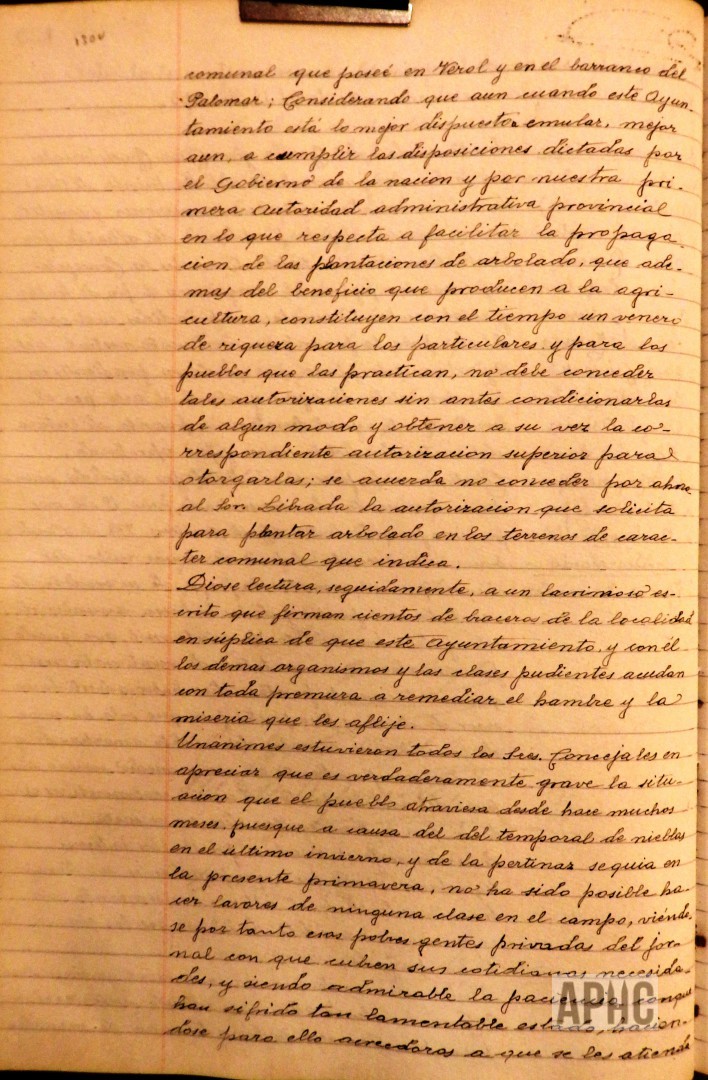 130v
comunal que poseé en Verol y en el barranco del
Palomar; Considerando que aun cuando este Ayun-
tamiento está lo mejor dispuesto a emular, mejor
aun, a cumplir las disposiciones dictadas por
el Gobierno de la nacion y por nuestra pri-
mera autoridad administrativa provincial
en lo que respecta a facilitar la propaga-
cion de las plantaciones de arbolado, que ade-
mas del beneficio que producen a la agri-
cultura, constituyen con el tiempo un venero
de riqueza para los particulares y para los
pueblos que las practican, no debe conceder
tales autorizaciones sin antes condicionarlas
de algun modo y obtener a su vez la co-
rrespondiente autorizacion superior para
otorgarlas; se acuerda no conceder por ahora
al Sor. Librada la autorizacion que solicita
para plantar arbolado en los terrenos de carac-
ter comunal que indica.
Diose lectura, seguidamente, a un lacrimoso es-
crito que firman cientos de braceros de la localidad
en súplica de que este Ayuntamiento, y con él
los demas organismos y las clases pudientes acudan
con toda premura a remediar el hambre y la
miseria que les aflije.
Unánimes estuvieron todos los Sres. Concejales en
apreciar que es verdaderamente grave la situ-
acion que el pueblo atraviesa desde hace muchos
meses, puesque a causa del del temporal de nieblas
en el último invierno, y de la pertinaz sequia en
la presente primavera, no ha sido posible ha-
cer lavores de ninguna clase en el campo, viendo-
se por tanto esas pobres gentes privadas del jor-
nal con que cubren sus cotidianas necesida-
des, y siendo admirable la paciencia conque
han sifrido tan lamentable estado, hacien-
dose para ello acreedoras a que se les atienda
APHC